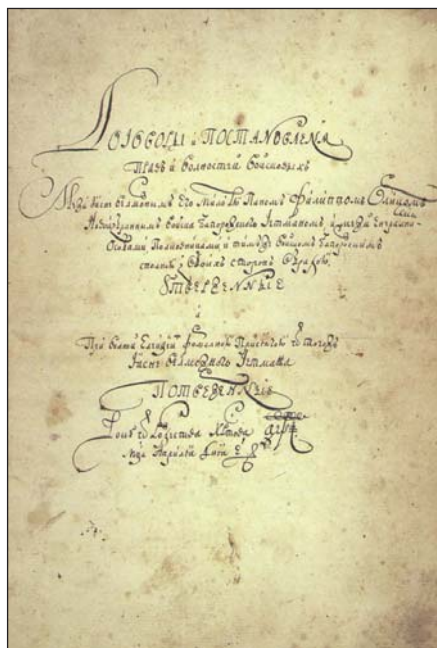 Договоры и Постановленя
Правъ и волностей войсковыхъ
Межи Ясне велможнимъ Его Паномъ Филиппомъ Орликомъ
Войска Запорожского Гетманомъ, и межи Енералн
Особами Полковниками и тимже Войскомъ Запорожскимъ
з обоихъ сторонъ обрадою
Утверженние
а
При волной Елекцией формалною Присягою от тогожъ
Ясне велможного Гетмана
Потверженние
Року от Рождества Христова
Мца Априля дня Е